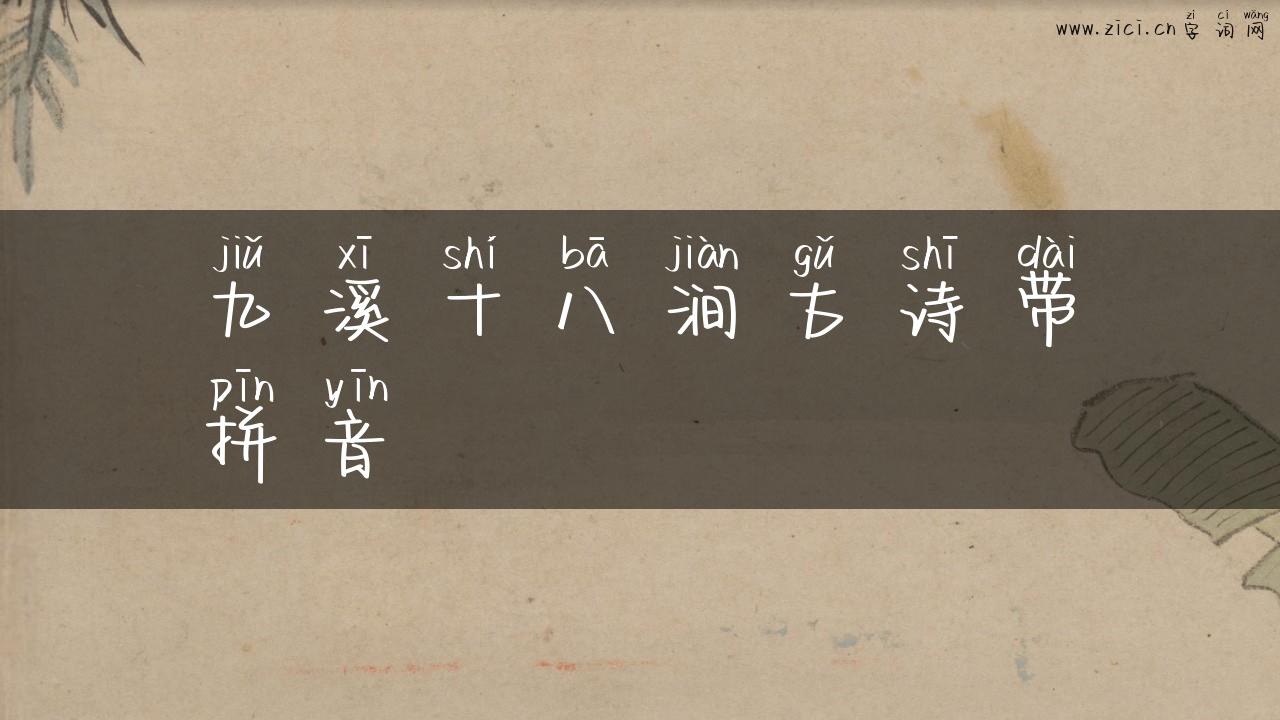 zì cí wǎng
www.zici.cn 字词网
jiǔ xī shí bā jiàn gǔ shī dài
九溪十八涧古诗带
pīn yīn
拼音